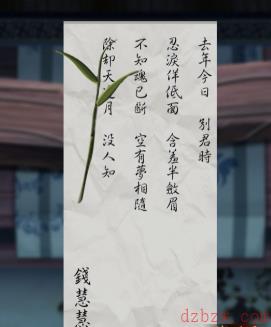 去年今日　別君時
忍淚佯低面　含羞半斂眉
不知魂已斷　空有夢相隨
除却天邊月　沒人知
錢慧慧
dzbzx.com